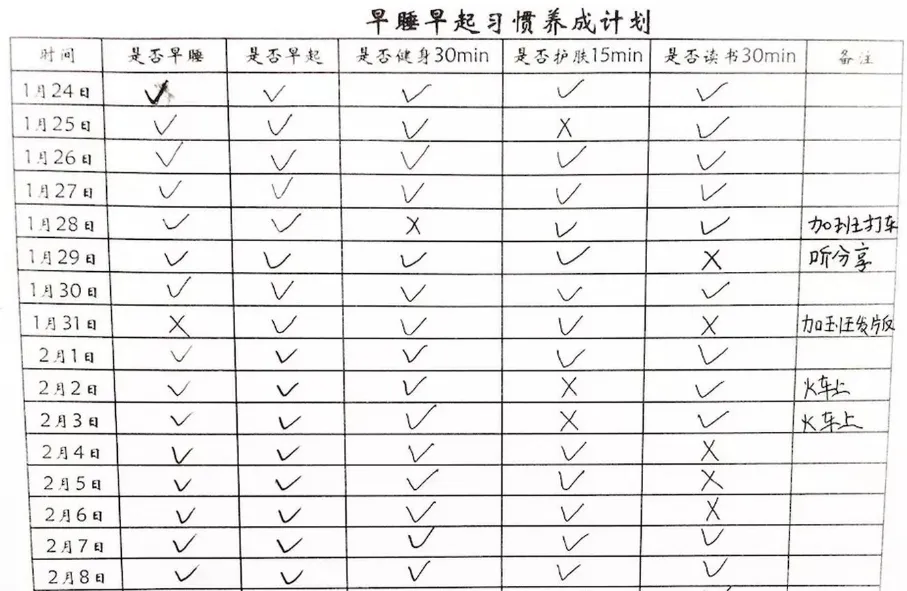 早睡早起习惯养成计划
时间 是否早睡 是否早起 是否健身30min 是否护肤15min 是否读书30min 备注
1月24日 ✓ ✓ ✓ ✓ ✓
1月25日 ✓ ✓ ✓ X ✓
1月26日 ✓ ✓ ✓ ✓ ✓
1月27日 ✓ ✓ ✓ ✓ ✓
1月28日 ✓ ✓ X ✓ ✓ 加班打车
1月29日 ✓ ✓ ✓ ✓ X 听分享
1月30日 ✓ ✓ ✓ ✓ ✓
1月31日 X ✓ ✓ ✓ X 加班发版
2月1日 ✓ ✓ ✓ ✓ ✓
2月2日 ✓ ✓ ✓ X ✓ 火车上
2月3日 ✓ ✓ ✓ X ✓ 火车上
2月4日 ✓ ✓ ✓ ✓ X
2月5日 ✓ ✓ ✓ ✓ X
2月6日 ✓ ✓ ✓ ✓ X
2月7日 ✓ ✓ ✓ ✓ ✓
2月8日 ✓ ✓ ✓ ✓ ✓